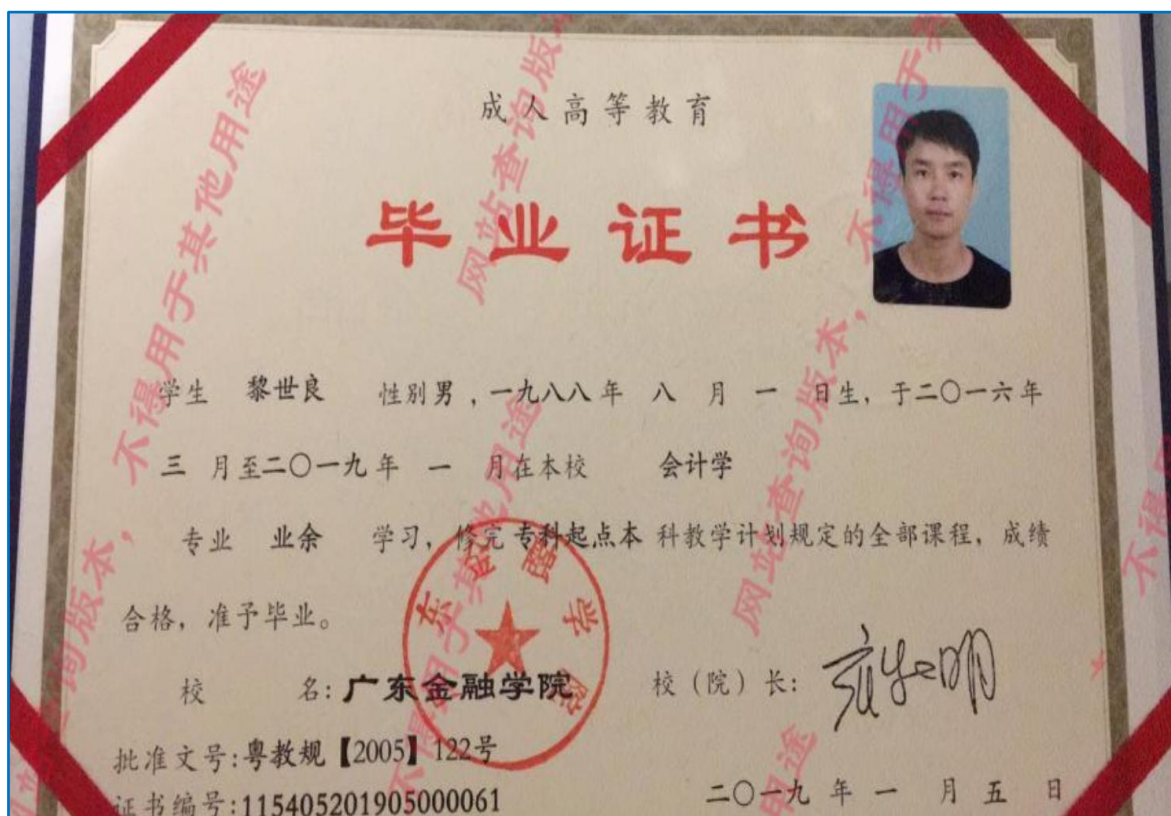 成人高等教育
毕业证书
学生 黎世良 性别男，一九八八年 八 月 一 日生，于二〇一六年
三 月至二〇一九年 一 月在本校 会计学
专业 业余 学习，修完专科起点本 科教学计划规定的全部课程，成绩
合格，准予毕业。
校 名：广东金融学院 校（院）长：
批准文号：粤教规【2005】122号
证书编号：115405201905000061 二〇一九 年 一 月 五 日
网站查询版本，不得用于其他用途
网站查询版本，不得用于其他用途